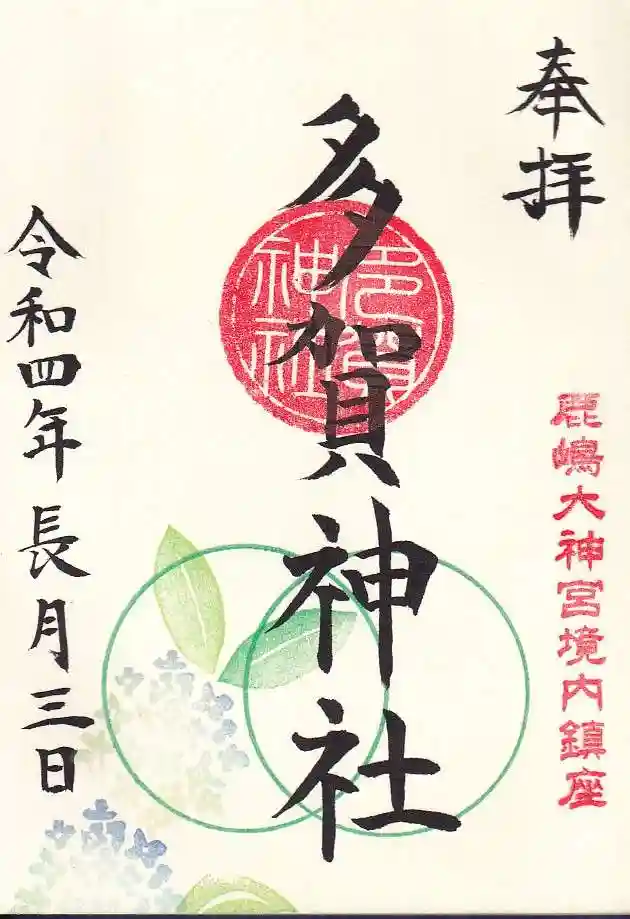 奉拝
鹿嶋大神宮境内鎮座
多賀神社
令和四年長月三日